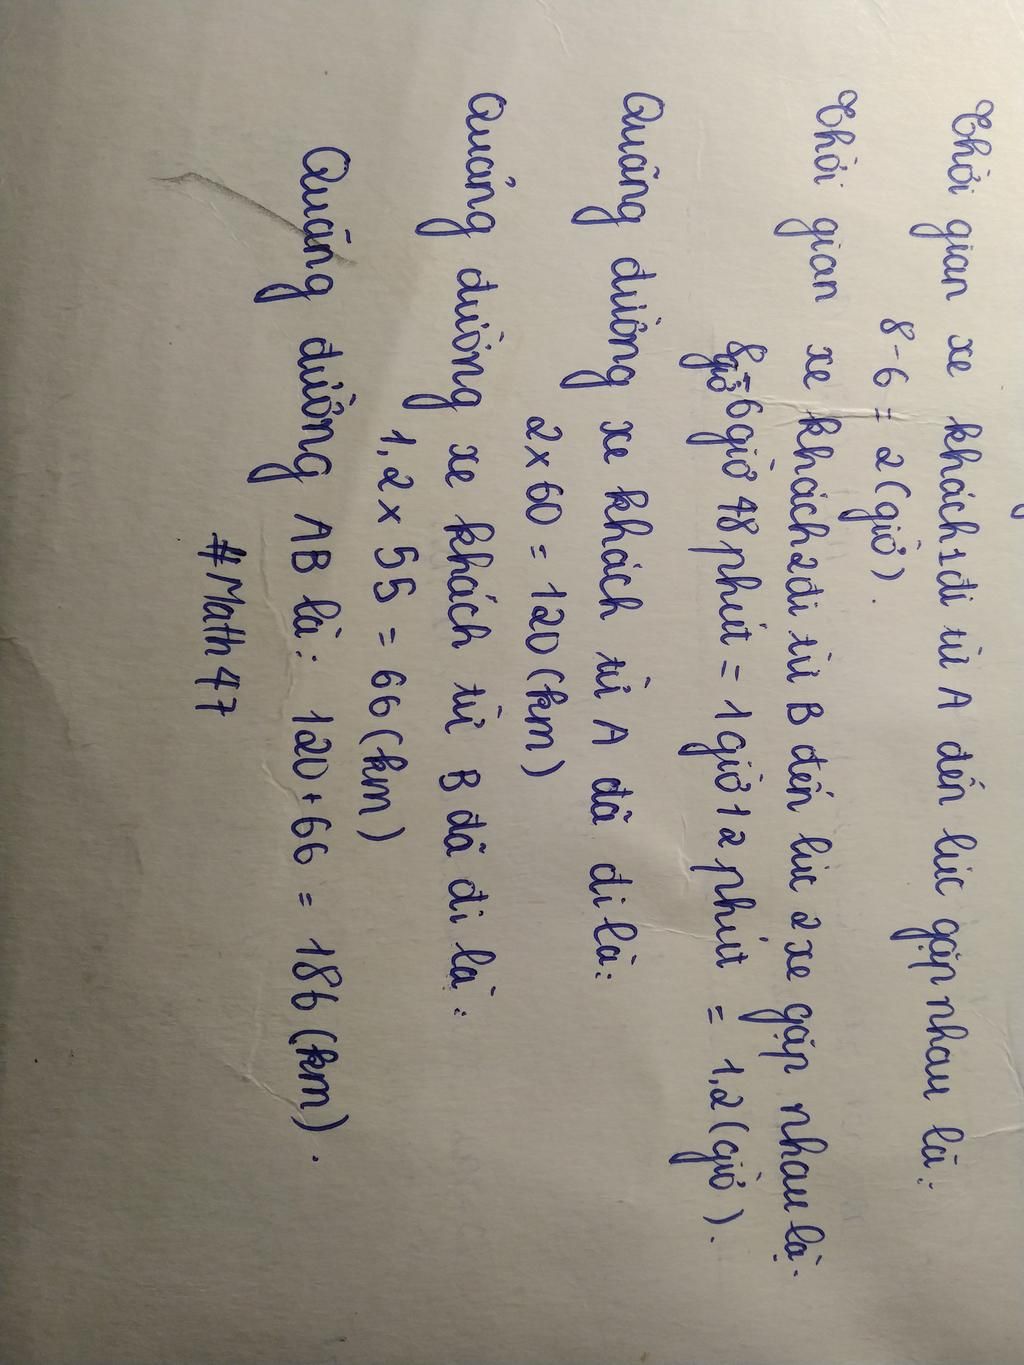 Thời gian xe khách 1 đi từ A đến lúc gặp nhau là:
8 - 6 = 2 (giờ).
Thời gian xe khách 2 đi từ B đến lúc 2 xe gặp nhau là:
8 giờ - 6 giờ 48 phút = 1 giờ 12 phút = 1,2 (giờ).
Quãng đường xe khách từ A đã đi là:
2 x 60 = 120 (km)
Quảng đường xe khách từ B đã đi là:
1,2 x 55 = 66 (km)
Quãng đường AB là: 120 + 66 = 186 (km).
#Math47